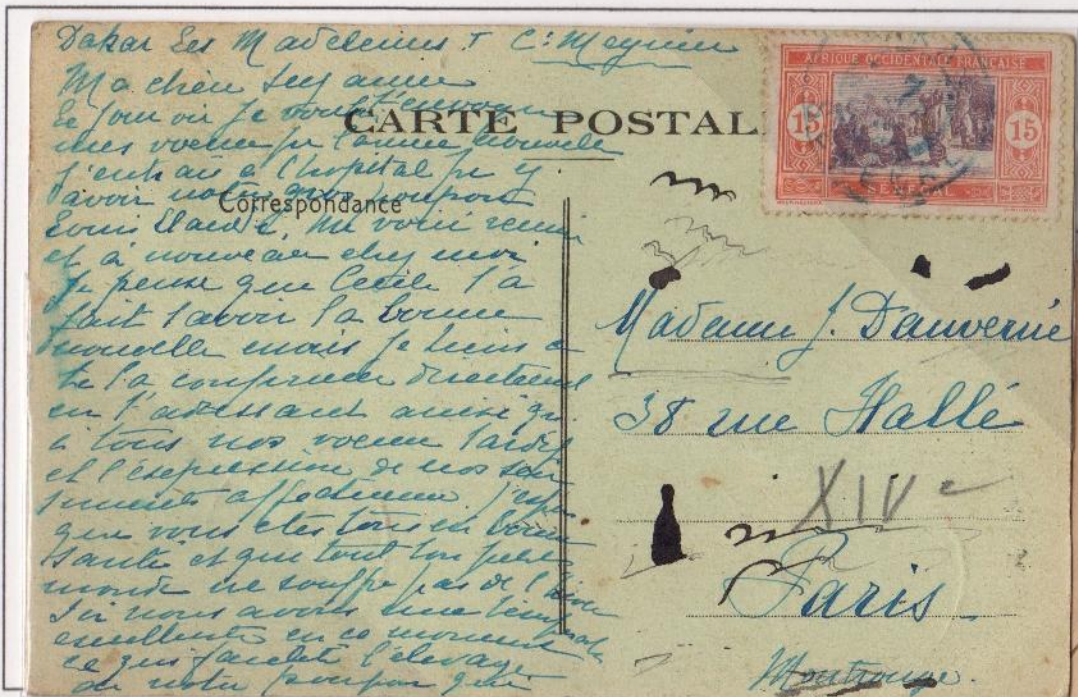 Dakar Les Madeleines I C: Meynier
Ma chère Suzanne
Le jour où je voulais t'envoyer
mes voeux pr l'année nouvelle
j'entrais à l'hopital pr y
avoir notre gros poupon
Louis Claude. Me voici
et à nouveau chez moi
Je pense que Cecile t'a
fait savoir la bonne
nouvelle mais je tiens à
te la confirmer directement
en t'adressant ainsi qu'
à tous nos voeux tardifs
et l'expression de nos sen
timents affectueux j'espère
que vous êtes tous en bonne
santé et que tout ton petit
monde ne souffre pas de l'hiver
Ici nous avons une température
excellente en ce moment
ce qui facilite l'élevage
de notre poupon qui
CARTE POSTAL
Correspondance
AFRIQUE OCCIDENTALE FRANÇAISE
15 15
SENEGAL
Madame J. Dauverné
38 rue Hallé
XIVe
Paris
Montrouge.